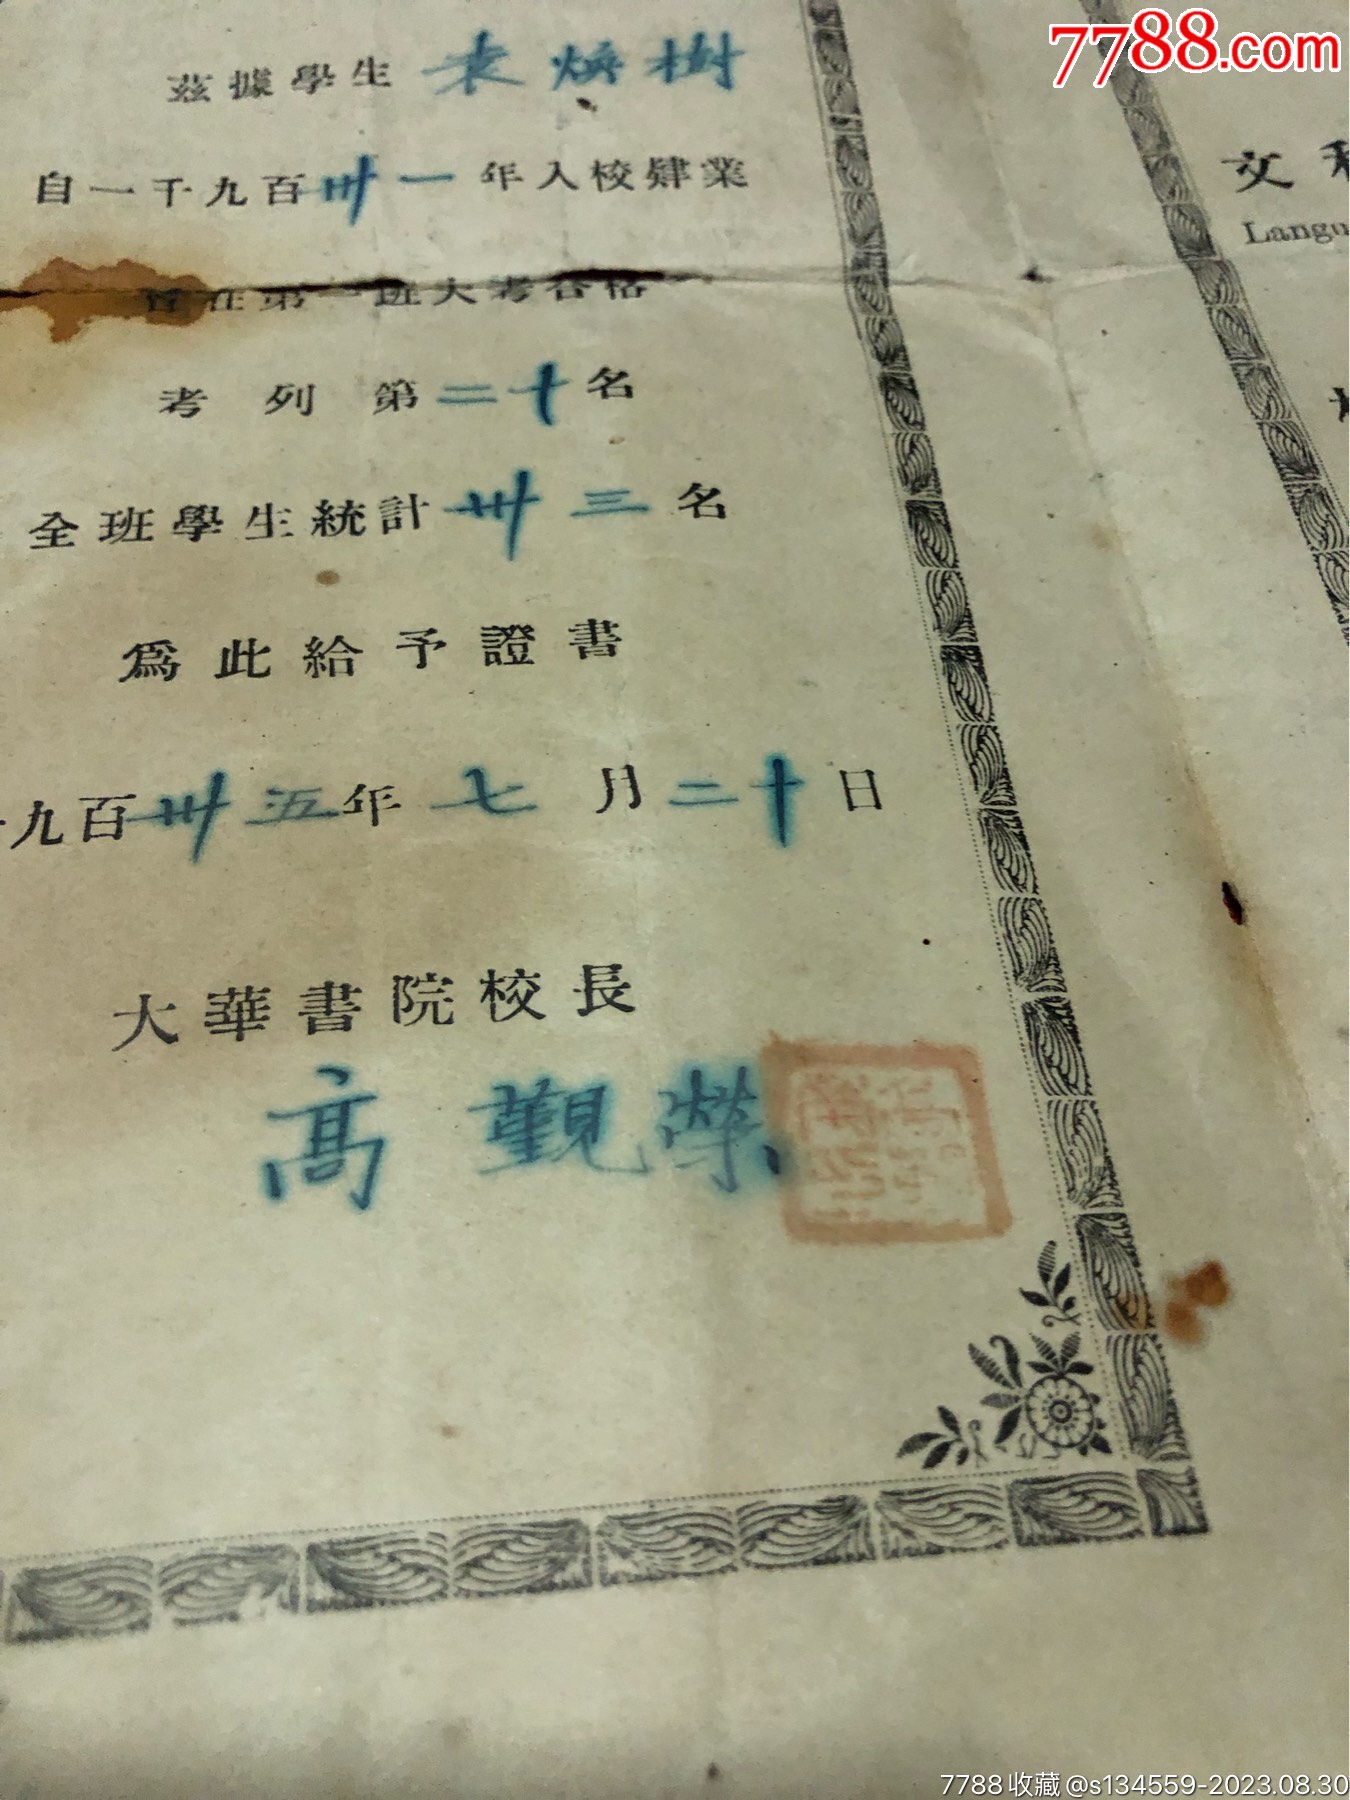 7788.com
茲據學生袁煥樹
自一千九百卅一年入校肄業
曾在第一班大考合格
考列第二十名
全班學生統計卅三名
爲此給予證書
九百卅五年七月二十日
大華書院校長
高觀榮
文科
Langu
7788收藏@s134559-2023.08.30